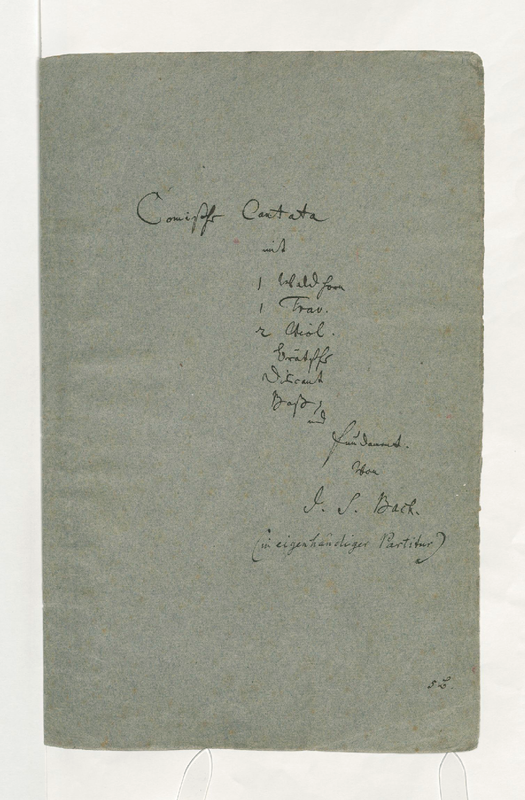 Comische Cantata
mit
1 Waldhorn
1 Trav.
2 Viol.
Brätsche
Discant
Baß,
und
Fundament.
Von
J. S. Bach.
(in eigenhändiger Partitur)